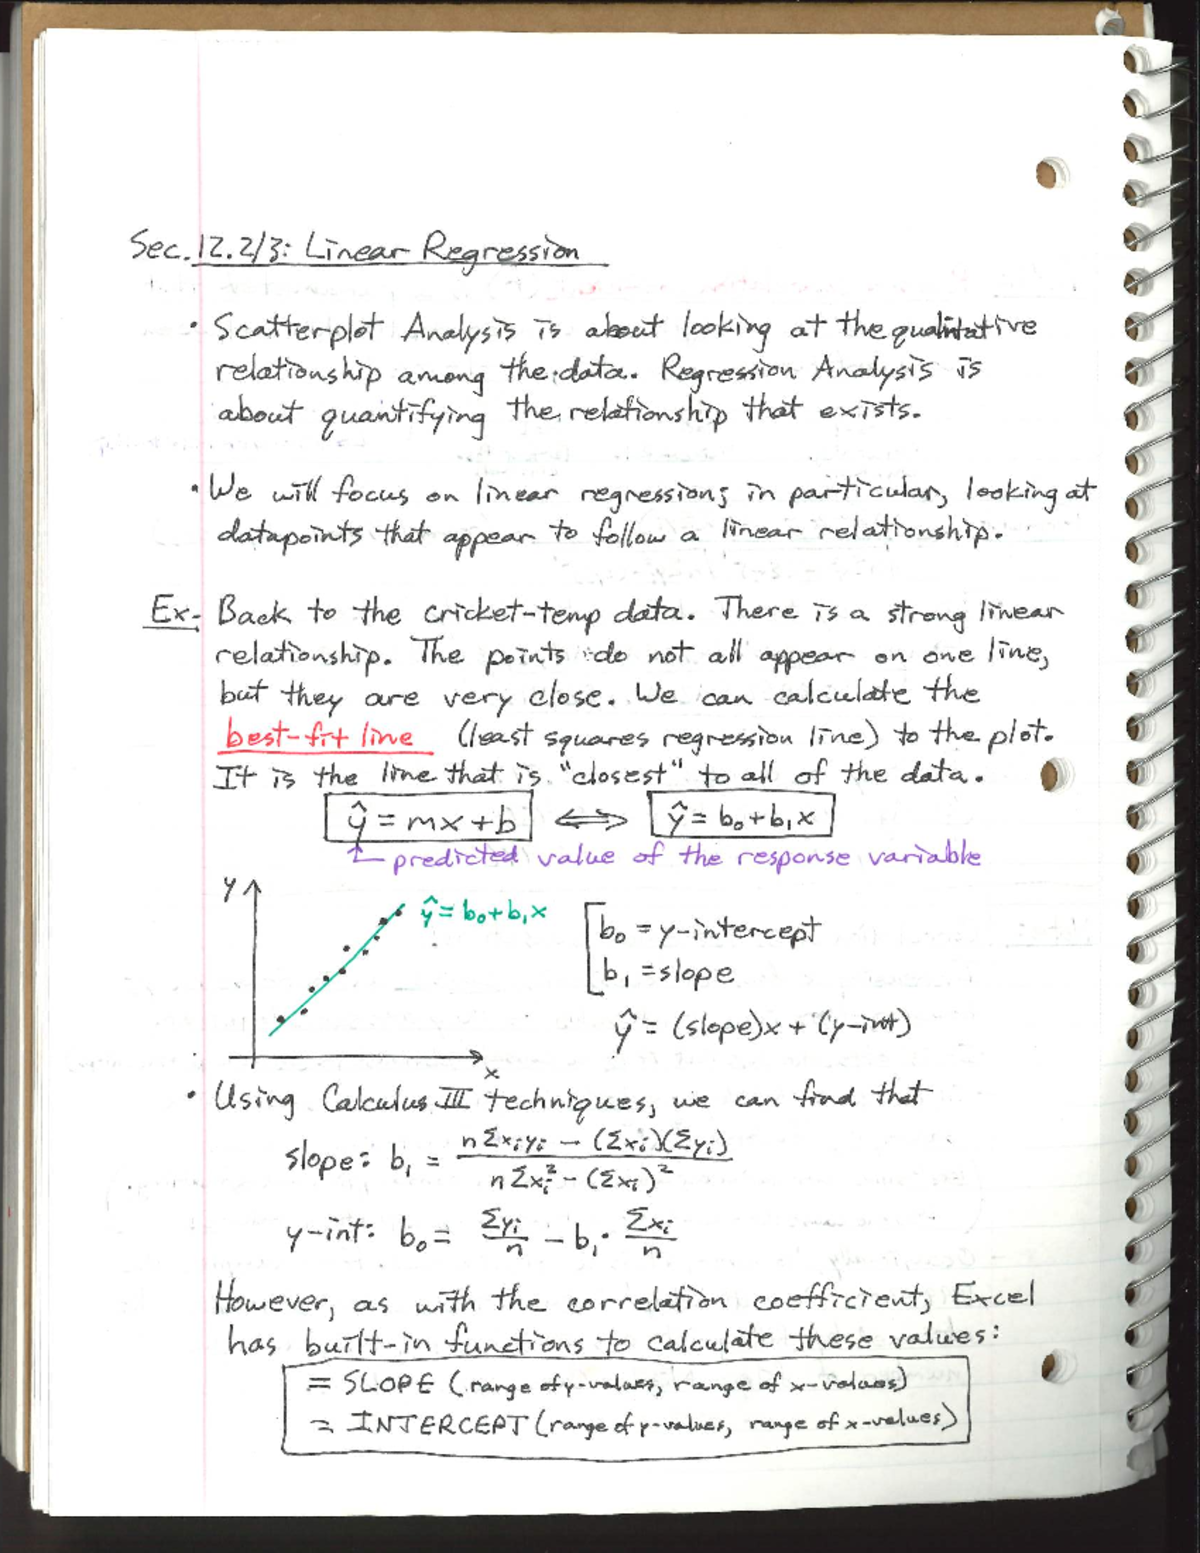 Sec. 12.2/3: Linear Regression
• Scatterplot Analysis is about looking at the qualitative
relationship among the data. Regression Analysis is
about quantifying the relationship that exists.
• We will focus on linear regressions in particular, looking at
datapoints that appear to follow a linear relationship.
Ex- Back to the cricket-temp data. There is a strong linear
relationship. The points do not all appear on one line,
but they are very close. We can calculate the
best-fit line (least squares regression line) to the plot.
It is the line that is "closest" to all of the data.
ŷ = mx + b ⟺ ŷ = b₀ + b₁x
predicted value of the response variable
y
ŷ = b₀ + b₁x
b₀ = y-intercept
b₁ = slope
ŷ = (slope)x + (y-int)
x
• Using Calculus III techniques, we can find that
slope: b₁ = (nΣxᵢyᵢ - (Σxᵢ)(Σyᵢ)) / (nΣxᵢ² - (Σxᵢ)²)
y-int: b₀ = Σyᵢ/n - b₁ · Σxᵢ/n
However, as with the correlation coefficient, Excel
has built-in functions to calculate these values:
= SLOPE (range of y-values, range of x-values)
= INTERCEPT (range of y-values, range of x-values)